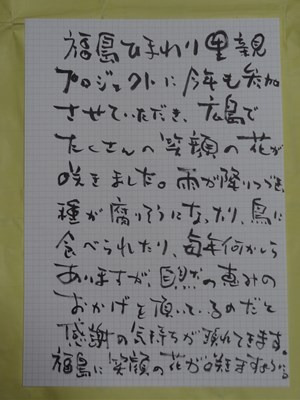 福島ひまわり里親
プロジェクトに今年も参加
させていただき、広島で
たくさんの笑顔の花が
咲きました。雨が降りつづき、
種が腐りそうになったり、鳥に
食べられたり、毎年何かしら
ありますが、自然の恵みの
おかげを頂いているのだと
感謝の気持ちが溢れてきます。
福島に笑顔の花が咲きますように